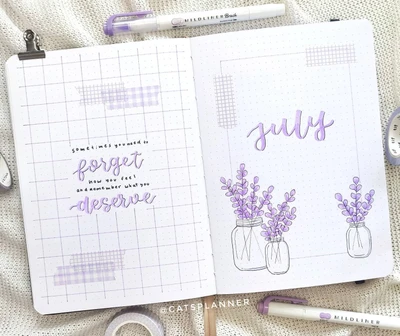 MILDLINER Brush
sometimes you need to
forget
how you feel
and remember what you
deserve
july
@CATSPLANNER
MILDLINER